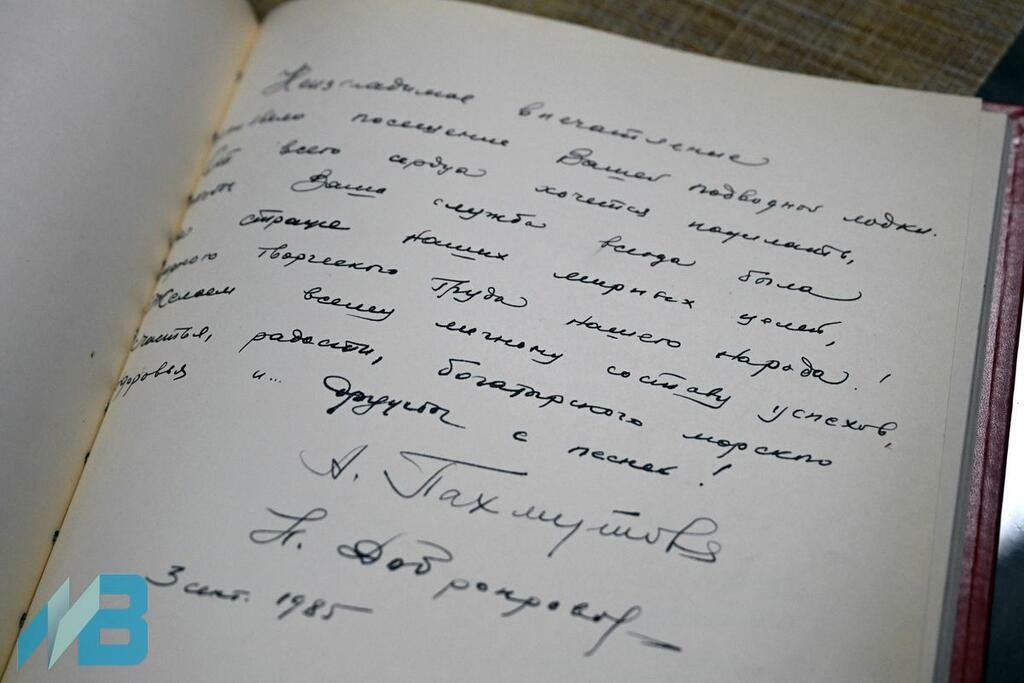 Неизгладимое впечатление
было посещение Вашей подводной лодки.
От всего сердца хочется пожелать,
чтобы Ваша служба всегда была
на страже наших мирных целей,
мирного творческого труда нашего народа!
Желаем всему личному составу успехов,
счастья, радости, богатырского морского
здоровья и... дружбы с песней!
А. Пахмутова
Н. Добронравов
3 сент. 1985
МВ